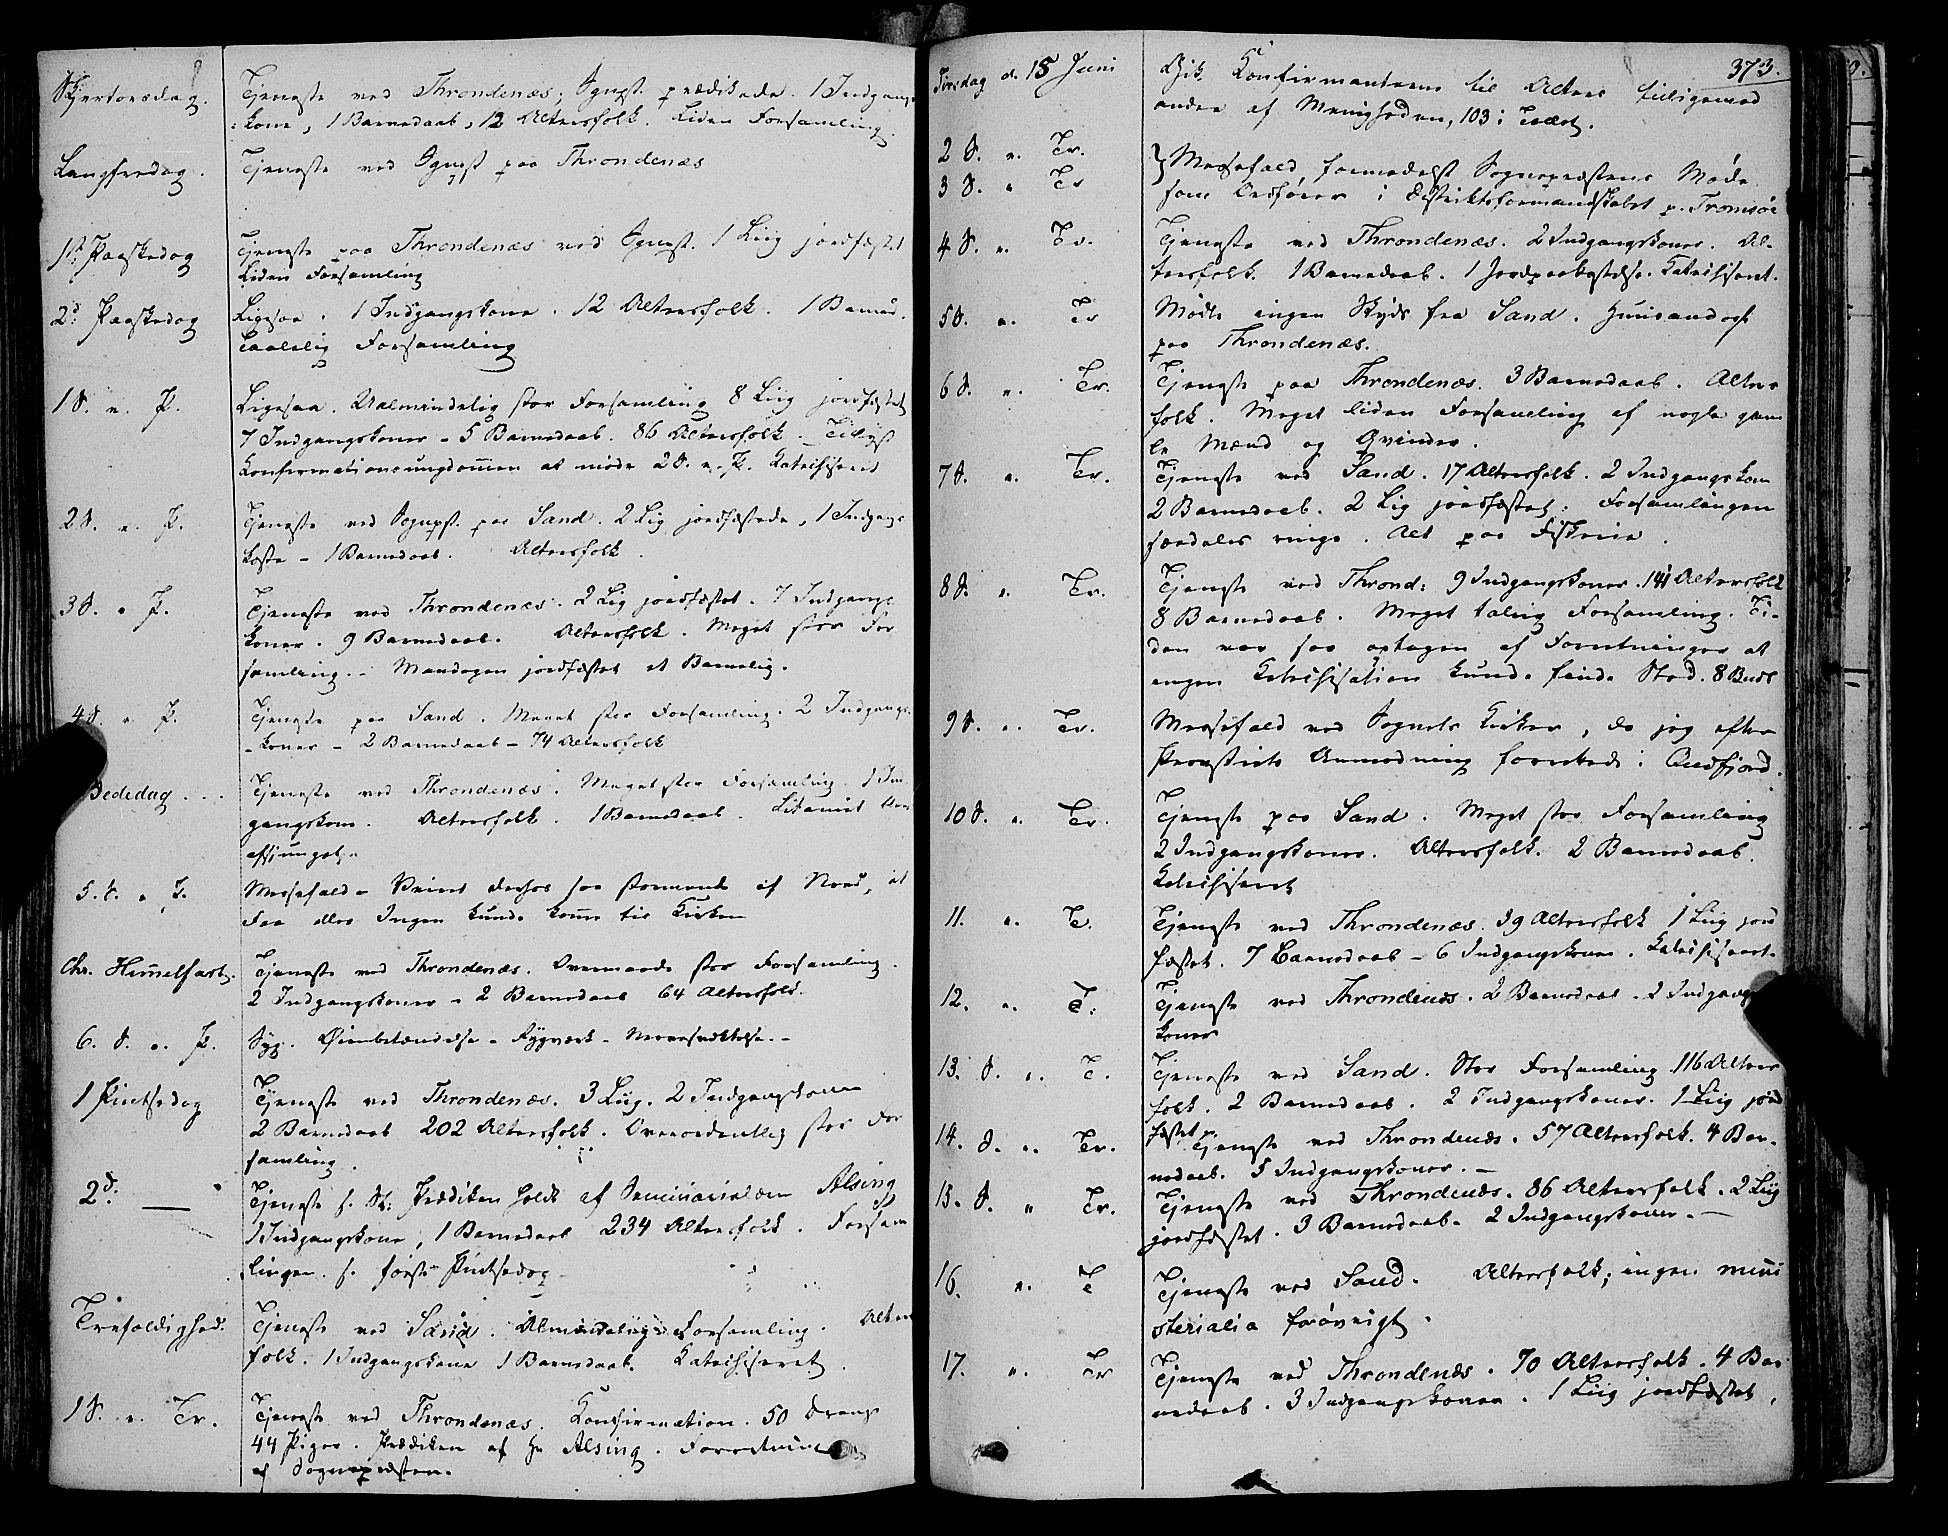 Skjertorsdag.
Tjeneste ved Throndenæs; Sgnpst. prædikede. 1 Indgangs-
kone, 1 Barnedaab, 12 Altersfolk. Liden Forsamling.
Langfredag.
Tjeneste ved Sgnpst paa Throndenæs
1st Paaskedag
Tjeneste paa Throndenæs ved Sgnpst. 1 Liig jordfæstet
Liden Forsamling
2d Paaskedag
Ligesaa. 1 Indgangskone. 12 Altersfolk. 1 Barned.
Taalelig Forsamling
1 S. e. P.
Ligesaa. Ualmindelig stor Forsamling 8 Liig jordfæstet
7 Indgangskoner - 5 Barnedaab. 86 Altersfolk. Tilsagt
Konfirmationsungdomen at møde 2 S. e. P. Katechiseret
2 S. e. P.
Tjeneste ved Sognpst. paa Sand. 2 Lig jordfæstede, 1 Indgangs
1 Barnedaab. Altersfolk.
3 S. e P.
Tjeneste ved Throndenæs. 2 Lig jordfæstet. 7 Indgangs
koner. 9 Barnedaab. Altersfolk. Meget stor For
samling. - Mandagen jordfæstet et Barnelig.
4 S. e. P.
Tjeneste paa Sand. Meget stor Forsamling. 2 Indgangs-
koner - 2 Barnedaab - 74 Altersfolk
Bededag . . .
Tjeneste ved Throndenæs. Meget stor Forsamling. 1 Ind
gangskone. Altersfolk. 1 Barnedaab. Litaniet
afsjunget.
5. S. e. P.
Messefald - Veiret derhos saa stormende af Nord, at
Faa eller Ingen kunde kome til Kirken
Chr. Himelfart.
Tjeneste ved Throndenæs. Overmaade stor Forsamling.
2 Indgangskoner - 2 Barnedaab 64 Altersfolk.
6. S. e. P.
Syg. Øienbetændelse - Rygværk -
1 Pintsedag
Tjeneste ved Throndenæs. 3 Liig. 2 Indgangskoner
2 Barnedaab 202 Altersfolk. Overordentlig stor For
samling.
2d: —
Tjeneste s. St: Prædiken holdt af Seminarielærer Alsing
1 Indgangskone, 1 Barnedaab 234 Altersfolk. Forsam
lingen s. første Pintsedag
Trefoldighed.
Tjeneste ved Sand. Almindelig Forsamling. Alters
folk. 1 Indgangskone 1 Barnedaab. Katechiseret.
1 S. e. Tr.
Tjeneste ved Throndenæs. Konfirmation. 50 Drenge
44 Piger. Prædiken af Hr Alsing. Forretninge
af Sognepræsten.
373.
Torsdag d. 15 Juni
Gik Konfirmanterne til Alters tilligemed
andre af Menigheden, 103 i Tallet.
2 S. e. Tr.
3 S. e Tr
Messefald, formedelst Sognepræstens Møde
som Ordfører i Distriktsformandskabet p. Tromsøe
4 S. e. Tr.
Tjeneste ved Throndenæs. 2 Indgangskoner. Al-
tersfolk. 1 Barnedaab. 1 Jordpaakastelse. Katechiseret.
5 S. e. Tr
Mødte ingen Skyds fra Sand. Huusandagt
paa Throndenæs.
6 S. e. Tr.
Tjeneste paa Throndenæs. 3 Barnedaab. Alters
folk. Meget liden Forsamling af nogle gam
le Mænd og Qvinder.
7 S. e. Tr.
Tjeneste ved Sand. 17 Altersfolk. 2 Indgangskon
2 Barnedaab. 2 Lig jordfæstet. Forsamlingen
særdeles ringe. Alt paa Fiskerie.
8 S. e. Tr.
Tjeneste ved Thrond: 9 Indgangskoner. 141 Altersfolk
8 Barnedaab. Meget talrig Forsamling. Ti-
den var saa optagen af Forretninger at
ingen Katechisation kunde finde Sted.
9 S. e. Tr.
Messefald ved Sognets Kirker, da jeg efter
Provstiets Anmodning forrettede i Qvæfjord.
10 S. e. Tr.
Tjeneste paa Sand. Meget stor Forsamling
2 Indgangskoner. Altersfolk. 2 Barnedaab.
Katechiseret
11. e. T.
Tjeneste ved Throndenæs. 39 Altersfolk 1 Liig jord
fæstet. 7 Barnedaab - 6 Indgangskoner. Katechiseret.
12. e. T.
Tjeneste ved Throndenæs. 2 Barnedaab. 2 Indgangs
koner
13. S. e. T.
Tjeneste ved Sand. Stor Forsamling 116 Alters
folk. 2 Barnedaab. 2 Indgangskoner. 1 Liig jord
fæstet
14. S. e. Tr.
Tjeneste ved Throndenæs. 57 Altersfolk. 4 Bar-
nedaab. 5 Indgangskoner. —
15. S. " Tr.
Tjeneste ved Throndenæs. 86 Altersfolk. 2 Liig
jordfæstet. 3 Barnedaab. 2 Indgangskoner. —
16. e. T
Tjeneste ved Sand. Altersfolk, ingen mini
sterialia forøvrigt.
17. ". Tr
Tjeneste ved Throndenæs. 70 Altersfolk. 4 Bar
nedaab. 3 Indgangskoner. 1 Liig jordfæstet.